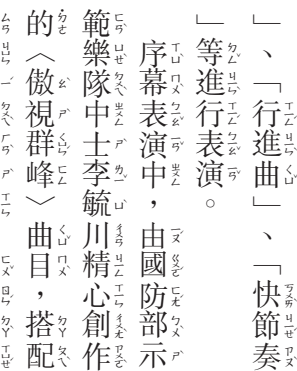 」、「行進曲」、「快節奏
」等進行表演。
序幕表演中,由國防部示
範樂隊中士李毓川精心創作
的〈傲視群峰〉曲目,搭配